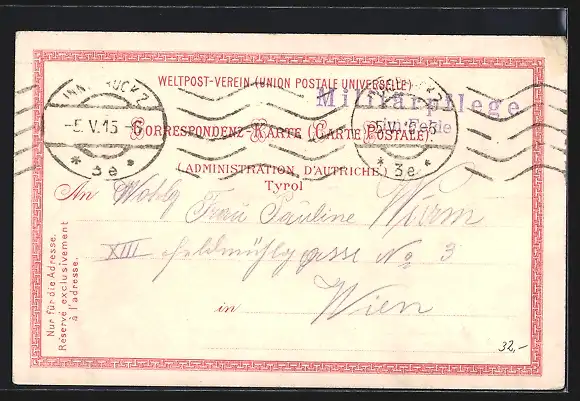 WELTPOST-VEREIN (UNION POSTALE UNIVERSELLE)
INNSBRUCK 2
-5.V.15
* 3e *
Militärpflege
CORRESPONDENZ-KARTE (CARTE POSTALE)
* 3e *
(ADMINISTRATION D'AUTRICHE)
Tyrol
An Wohlg Frau Pauline Wurm
XIII Feldmühlgasse No 3
in Wien
Nur für die Adresse.
Réservé exclusivement
à l'adresse.
32,-